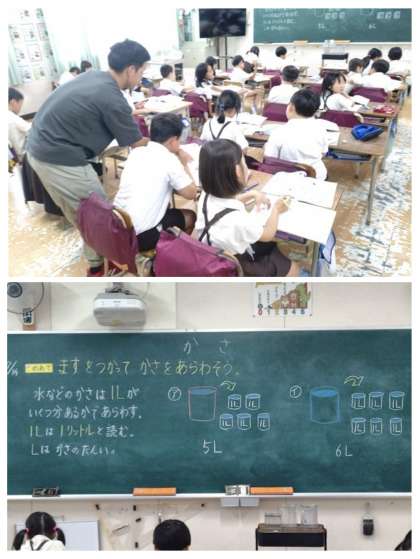 5L
6L
かさ
めあて ますをつかって かさをあらわそう。
水などのかさは 1Lが
いくつ分あるかであらわす。
1Lは 1リットルと読む。
Lは かさのたんい。
ア
1L 1L
1L 1L 1L
5L
イ
1L 1L 1L
1L 1L 1L
6L